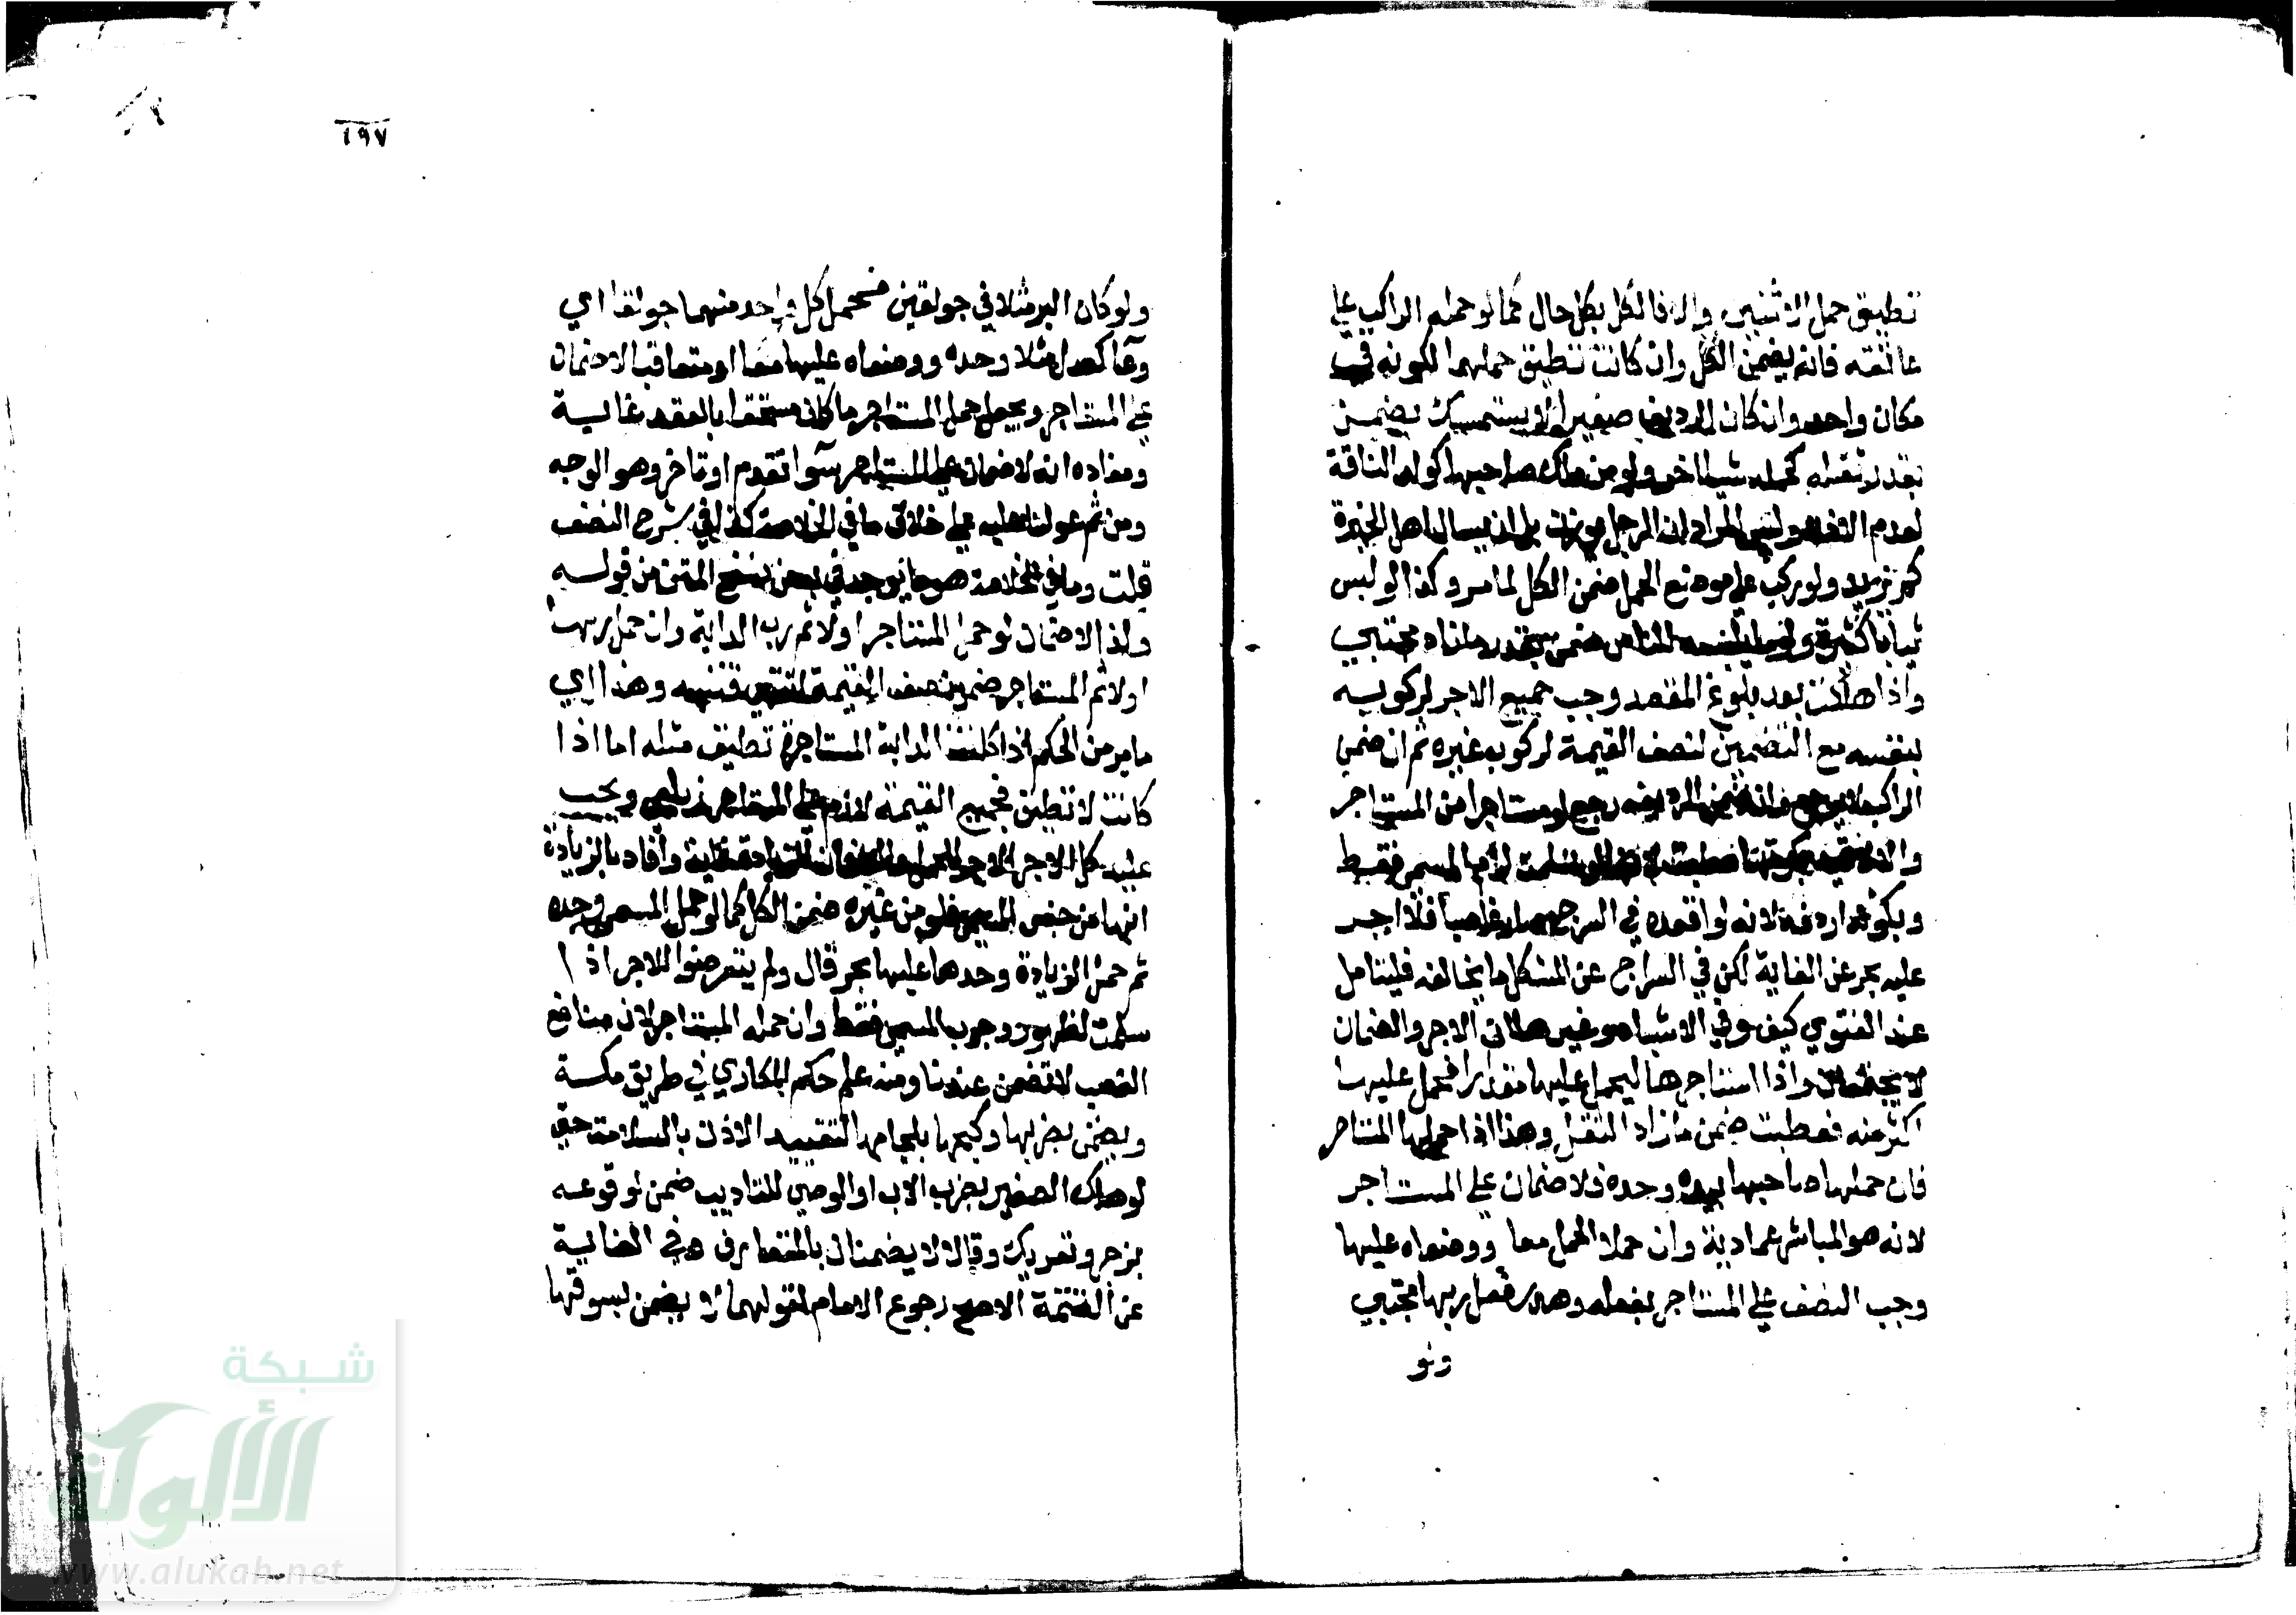 تطيق حمل الاثنين والا فالكل بكل حال كما لو حمله الراكب على
عاتقه فانه يضمن الكل وان كانت تطيق حملهما لكونه في
مكان واحد وان كان الرديف صغيرا لا يستمسك يضمن
بقدر ثقله كحمله شيئا اخر ولو من ملك صاحبها كولد الناقة
لعدم الاذن وليس المراد ان الرجل يوزن بل ان يسال اهل الخبرة
كم يزيد ولو ركب على موضع الحمل ضمن الكل لما مر وكذا لو لبس
ثيابا كثيرة ولو ما يلبسه الناس ضمن بقدر ما زاد مجتبى
واذا هلكت بعد بلوغ المقصد وجب جميع الاجر لركوبه
بنفسه مع التضمين لنصف القيمة لركوب غيره ثم ان ضمن
الراكب لا يرجع وان ضمن الرديف رجع لو مستاجرا من المستاجر
والا لا قيد بكونها عطبت لانها لو سلمت لزم المسمى فقط
وبكونه اردفه لانه لو اقعده في السرج صار غاصبا فلا اجر
عليه بحر عن الغاية لكن في السراج عن المشكل ما يخالفه فليتامل
عند الفتوى كيف وفي الاشباه وغيرها ان الاجر والضمان
لا يجتمعان واذا استاجرها ليحمل عليها مقدارا فحمل عليها
اكثر منه فعطبت ضمن ما زاد الثقل وهذا اذا حملها المستاجر
فان حملها صاحبها بيده وحده فلا ضمان على المستاجر
لانه هو المباشر عمادية وان حملا الحمل معا ووضعاه عليها
وجب النصف على المستاجر بفعله وهدر فعل ربها مجتبى
ولو
١٩٧
ولو كان البر مثلا في جولقين فحمل كل واحد منهما جولقا اي
وعاء كعدل مثلا وحده ووضعاه عليها معا او متعاقبا لا ضمان
على المستاجر ويجعل حمل المستاجر ما كان مستحقا بالعقد غاية
ومفاده انه لا ضمان على المستاجر سواء تقدم او تاخر وهو الوجه
ومن ثم عولنا عليه على خلاف ما في الخلاصة كذا في شرح المصنف
قلت وما في الخلاصة هو ما يوجد في بعض نسخ المتن من قوله
وكذا لا ضمان لو حمل المستاجر اولا ثم رب الدابة وان حمل ربها
اولا ثم المستاجر ضمن نصف القيمة انتهى فتنبه وهذا اي
ما مر من الحكم اذا كانت الدابة المستاجرة تطيق مثله اما اذا
كانت لا تطيق فجميع القيمة لازم على المستاجر زيلعي ويجب
عليه كل الاجر الاجر للحمل والضمان للزيادة غاية وافاد بالزيادة
انها من جنس المسمى فلو من غيره ضمن الكل كما لو حمل المسمى وحده
ثم حمل الزيادة وحدها عليها بحر قال ولم يتعرضوا للاجر اذا
سلمت لظهور وجوب المسمى فقط وان حمله المستاجر لان منافع
الغصب لا تضمن عندنا ومنه علم حكم المكاري في طريق مكة
وبضمن بضربها وكبحها بلجامها لتقييد الاذن بالسلامة حتى
لو هلك الصغير بضرب الاب او الوصي للتاديب ضمن لوقوعه
بزجر وتعريك وقالا لا يضمنان بالمتعارف وفي الغاية
عن التتمة الاصح رجوع الامام لقولهما لا يضمن لسوقها
شبكة
الألوكة
www.alukah.net